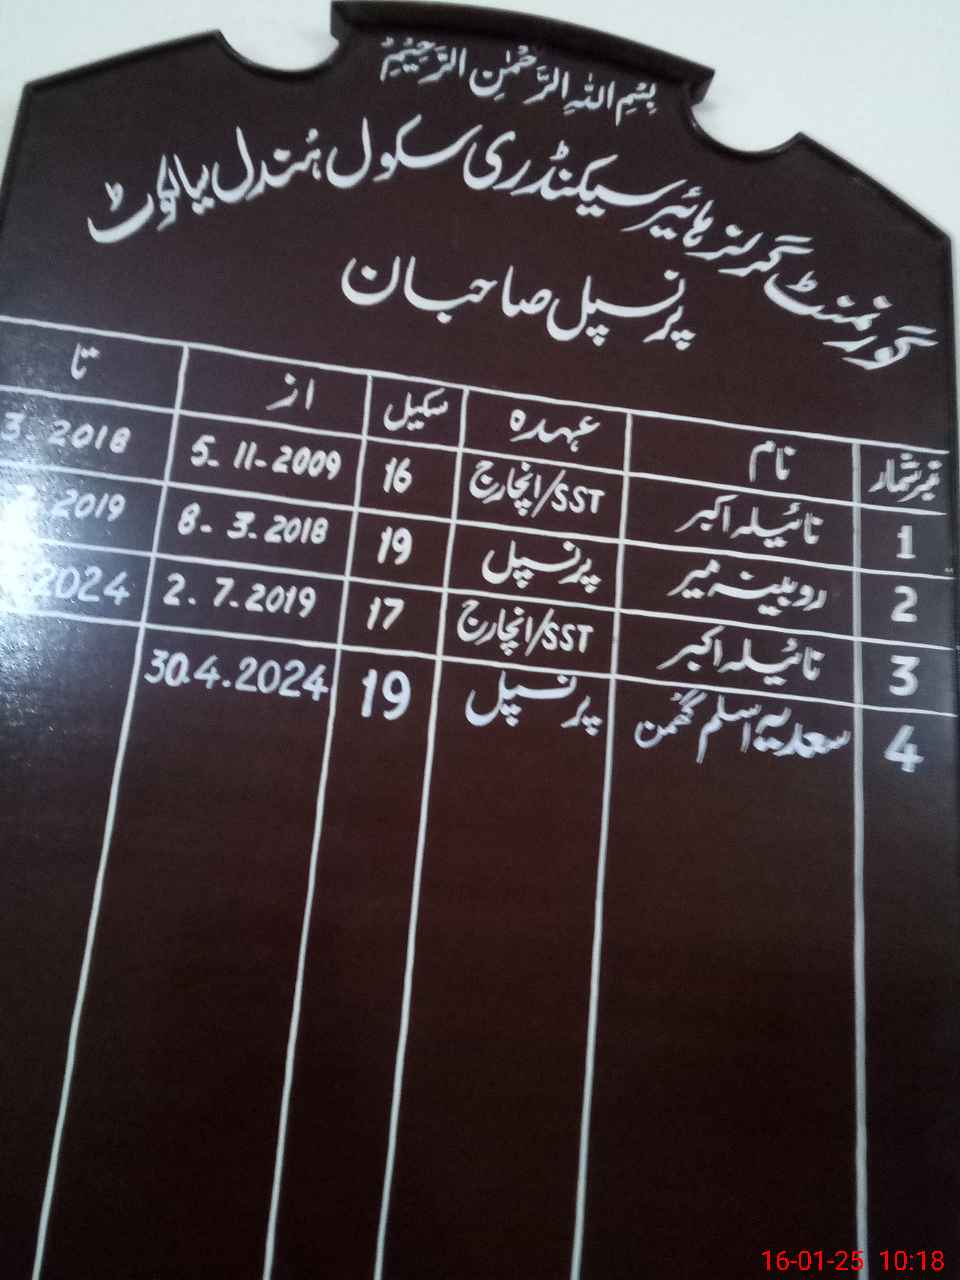 بِسْمِ اللہِ الرَّحْمٰنِ الرَّحِیْمِ
گورنمنٹ گرلز ہائیر سیکنڈری سکول ہندل
پرنسپل صاحبان
نمبر شمار نام عہدہ سکیل از تا
1 نائیلہ اکبر SST/انچارج 16 5-11-2009 3-2018
2 روبینہ میر پرنسپل 19 8-3-2018 2019
3 نائیلہ اکبر SST/انچارج 17 2.7.2019 2024
4 سعدیہ اسلم گھمن پرنسپل 19 30.4.2024
16-01-25 10:18